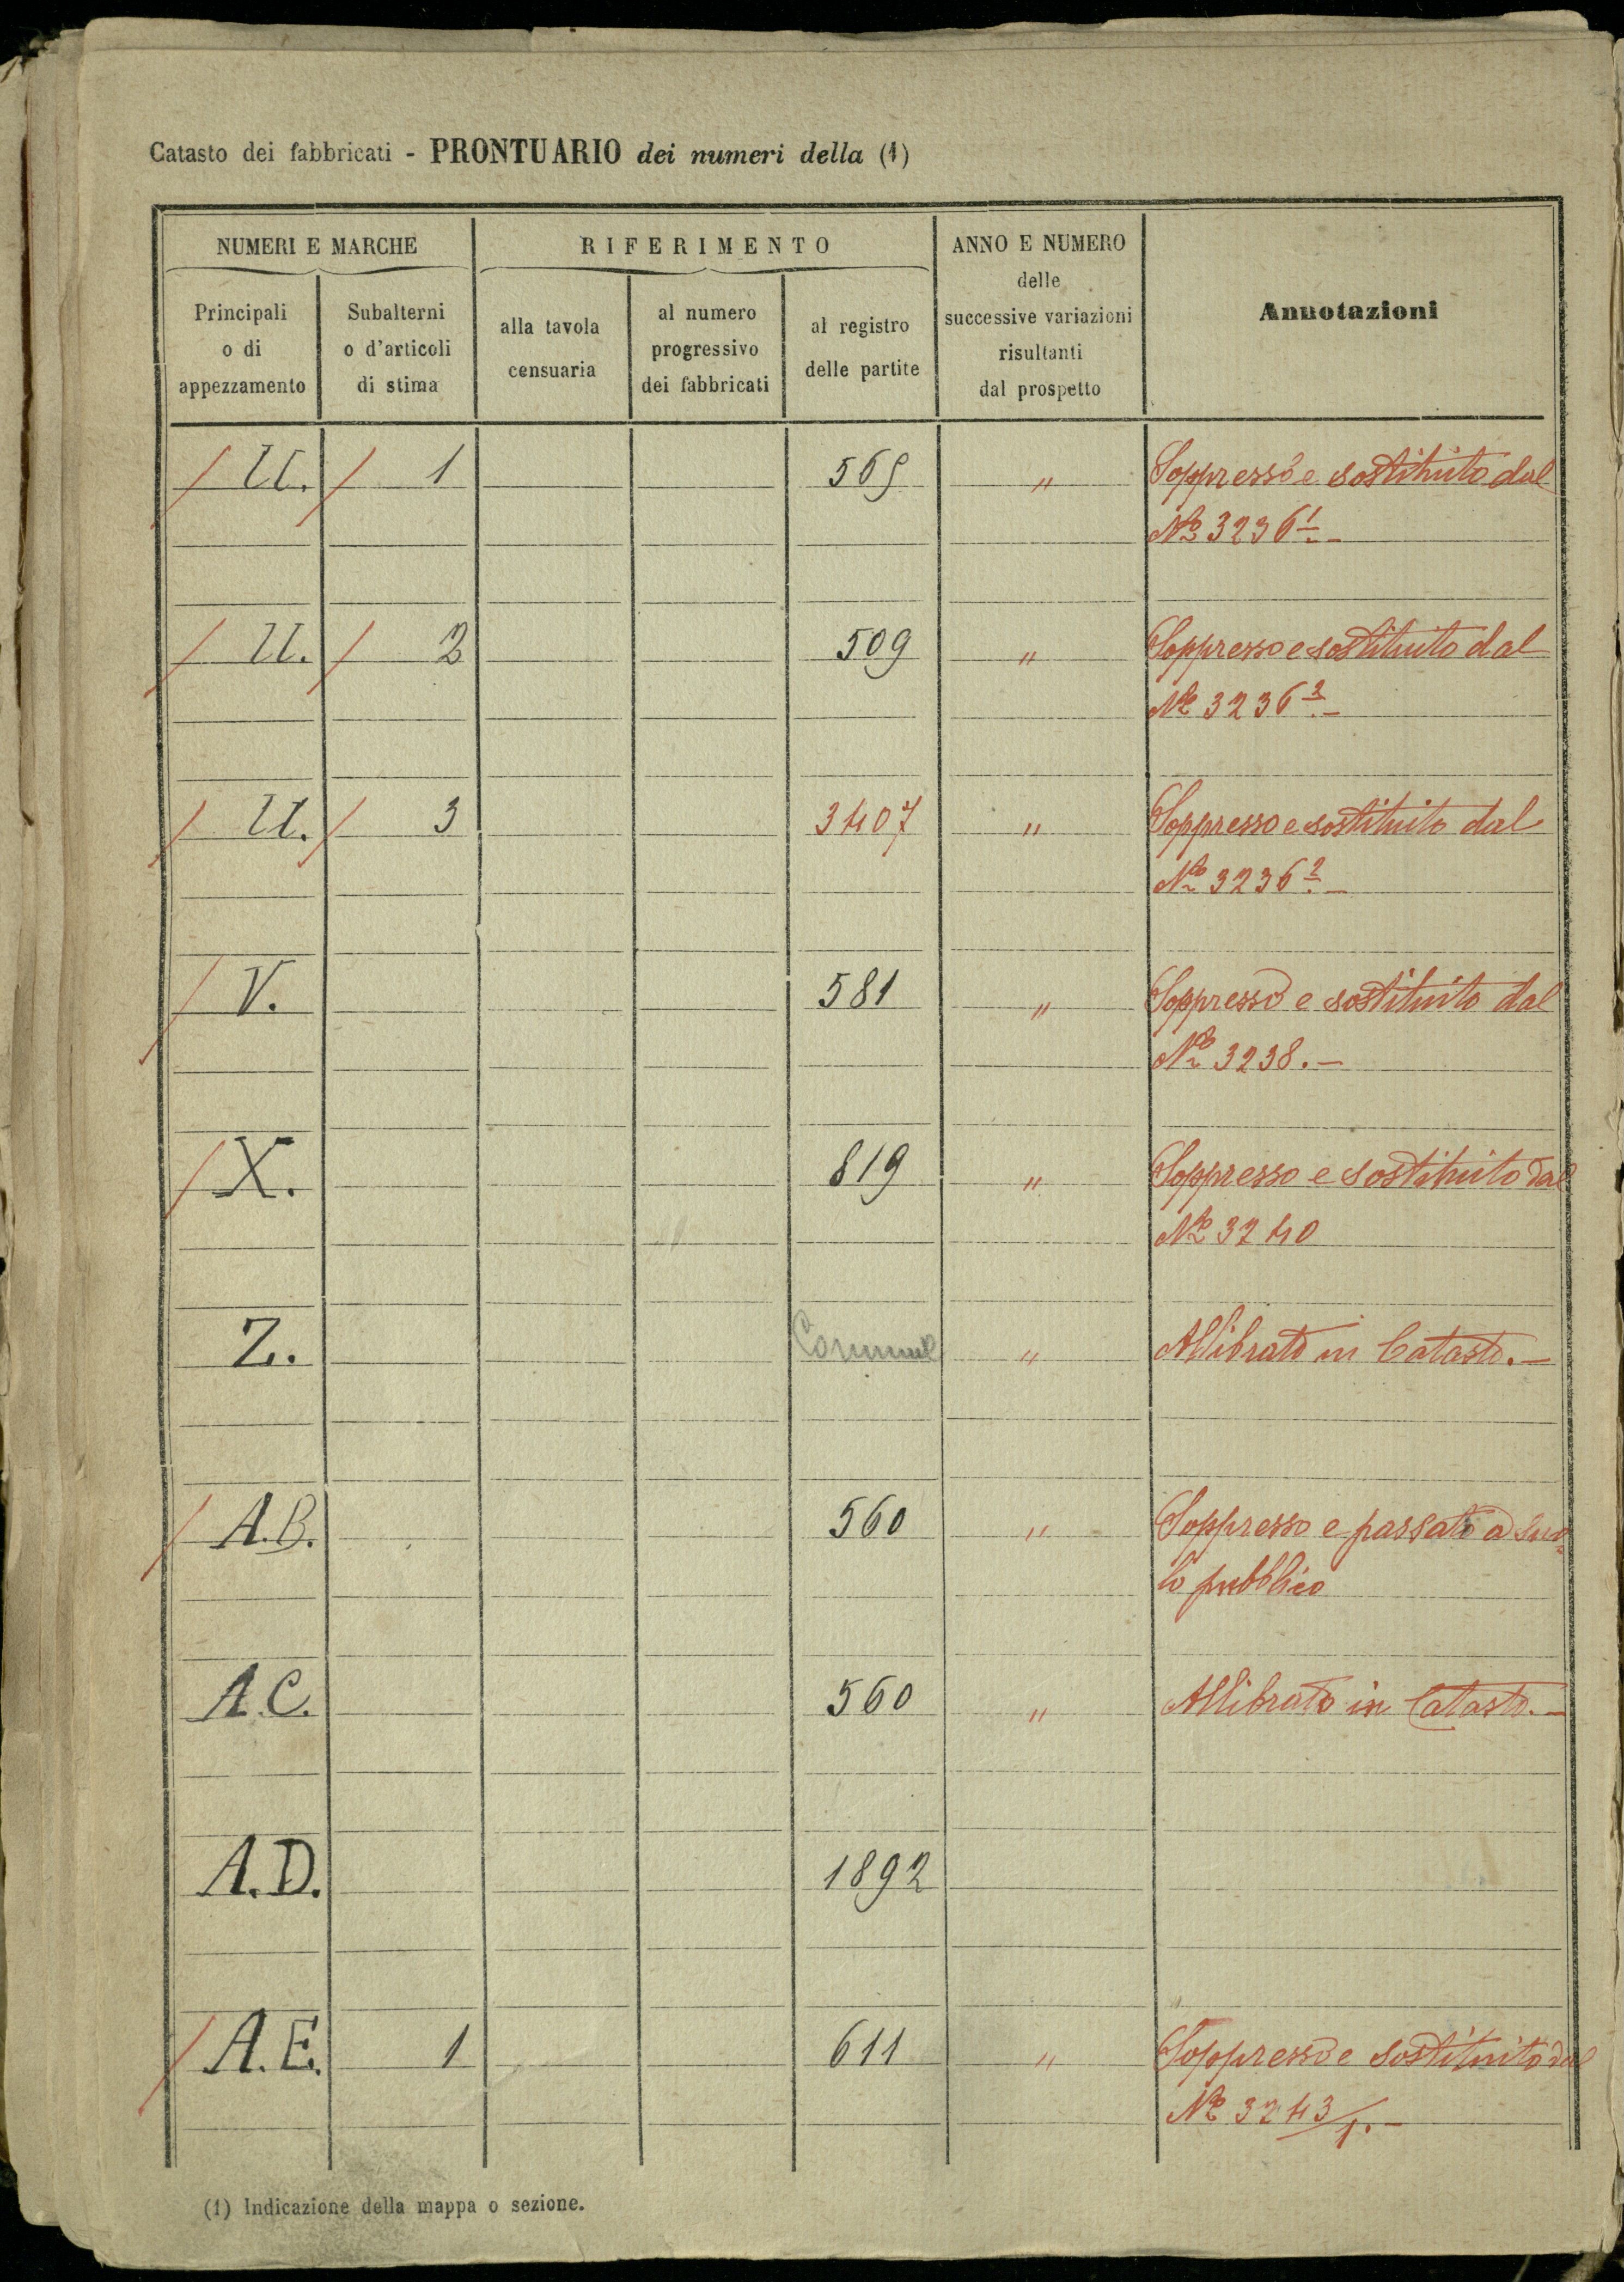 Catasto dei fabbricati - PRONTUARIO dei numeri della (1)
NUMERI E MARCHE
RIFERIMENTO
ANNO E NUMERO
delle
successive variazioni
risultanti
dal prospetto
Annotazioni
Principali
o di
appezzamento
Subalterni
o d'articoli
di stima
alla tavola
censuaria
al numero
progressivo
dei fabbricati
al registro
delle partite
/ U. / 1 569 " Soppresso e sostituito dal
No 3236 1.-
/ U. / 2 509 " Soppresso e sostituito dal
No 3236 2.-
/ U. / 3 3407 " Soppresso e sostituito dal
No 3236 2.-
/ V. 581 " Soppresso e sostituito dal
No 3238.-
/ X. 819 " Soppresso e sostituito dal
No 3240
Z. Comune " Allibrato in Catasto.-
/ A.B. 560 " Soppresso e passato a suo-
lo pubblico
A.C. 560 " Allibrato in Catasto.-
A.D. 1892
/ A.E. 1 611 " Soppresso e sostituito dal
No 3243/1.-
(1) Indicazione della mappa o sezione.